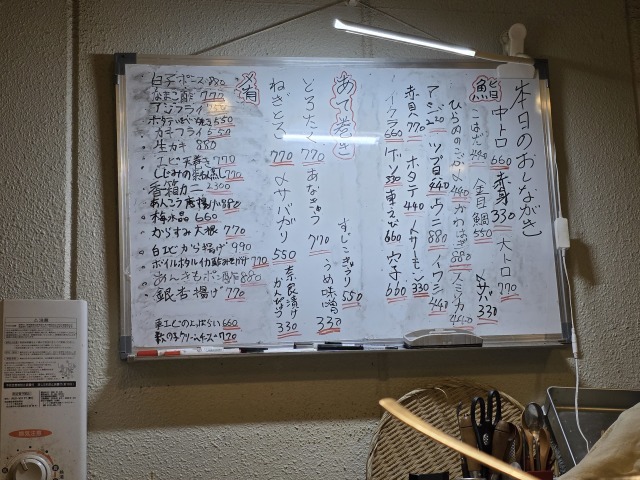 本日のおしながき
鮨
中トロ 660 赤身 330 大トロ 770
こはだ 440 金目鯛 550 〆サバ 330
ひらめのこぶ〆 440 かわはぎ 880 スミイカ
アジ 220 ツブ貝 440 ウニ 880 イワシ
赤貝 770 ホタテ 440 〆サーモン 330
イクラ 660 車えび 660 穴子 660
あて巻き
とろたく 770 あなきゅう 770 うめ味噌 330
すじこきゅうり 550
ねぎとろ 770 〆サバガリ 550 奈良漬け かんぴょう 330
〆肴
白子ポン酢 880
なまこ酢 770
アジフライ
ホタテ 550
カキフライ 550
生カキ 880
エビ天巻き 770
しじみの 770
香箱カニ 2300
あんこう唐揚げ 880
梅水晶 660
からすみ大根 770
白エビから揚げ 990
ボイルホタルイカ 770
あんきもポン酢 880
銀杏揚げ 770
660
数の子クリームチーズ 770